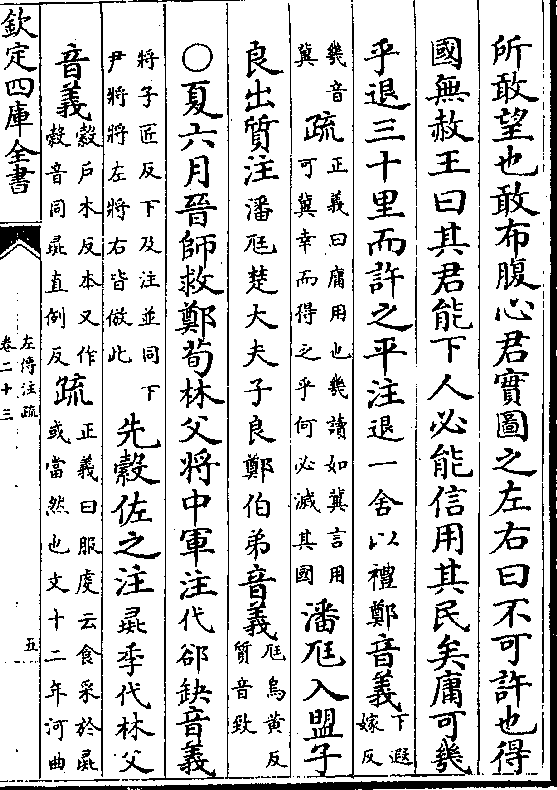 所敢望也敢布腹心君實圖之左右曰不可許也得
國無赦王曰其君能下人必能信用其民矣庸可幾
乎退三十里而許之平注退一舍以禮鄭音義下遐
嫁反
幾音
冀疏正義曰庸用也幾讀如冀言用
可冀幸而得之乎何必滅其國潘尫入盟子
良出質注潘尫楚大夫子良鄭伯弟音義尫烏黄反
質音致
○夏六月晉師救鄭荀林父將中軍注代郤缺音義
將子匠反下及注並同下
尹將將左將右皆倣此先縠佐之注彘季代林父
音義縠戸木反本又作
㲄音同彘直例反疏正義曰服虔云食采於彘
或當然也文十二年河曲
欽定四庫全書
左傳注疏
卷二十三
五